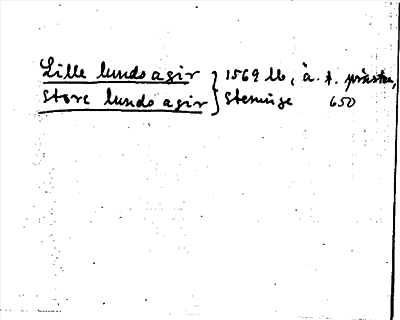 Lille lunds agir } 1569 lb, à. f.
Store lunds agir } Steninge 650